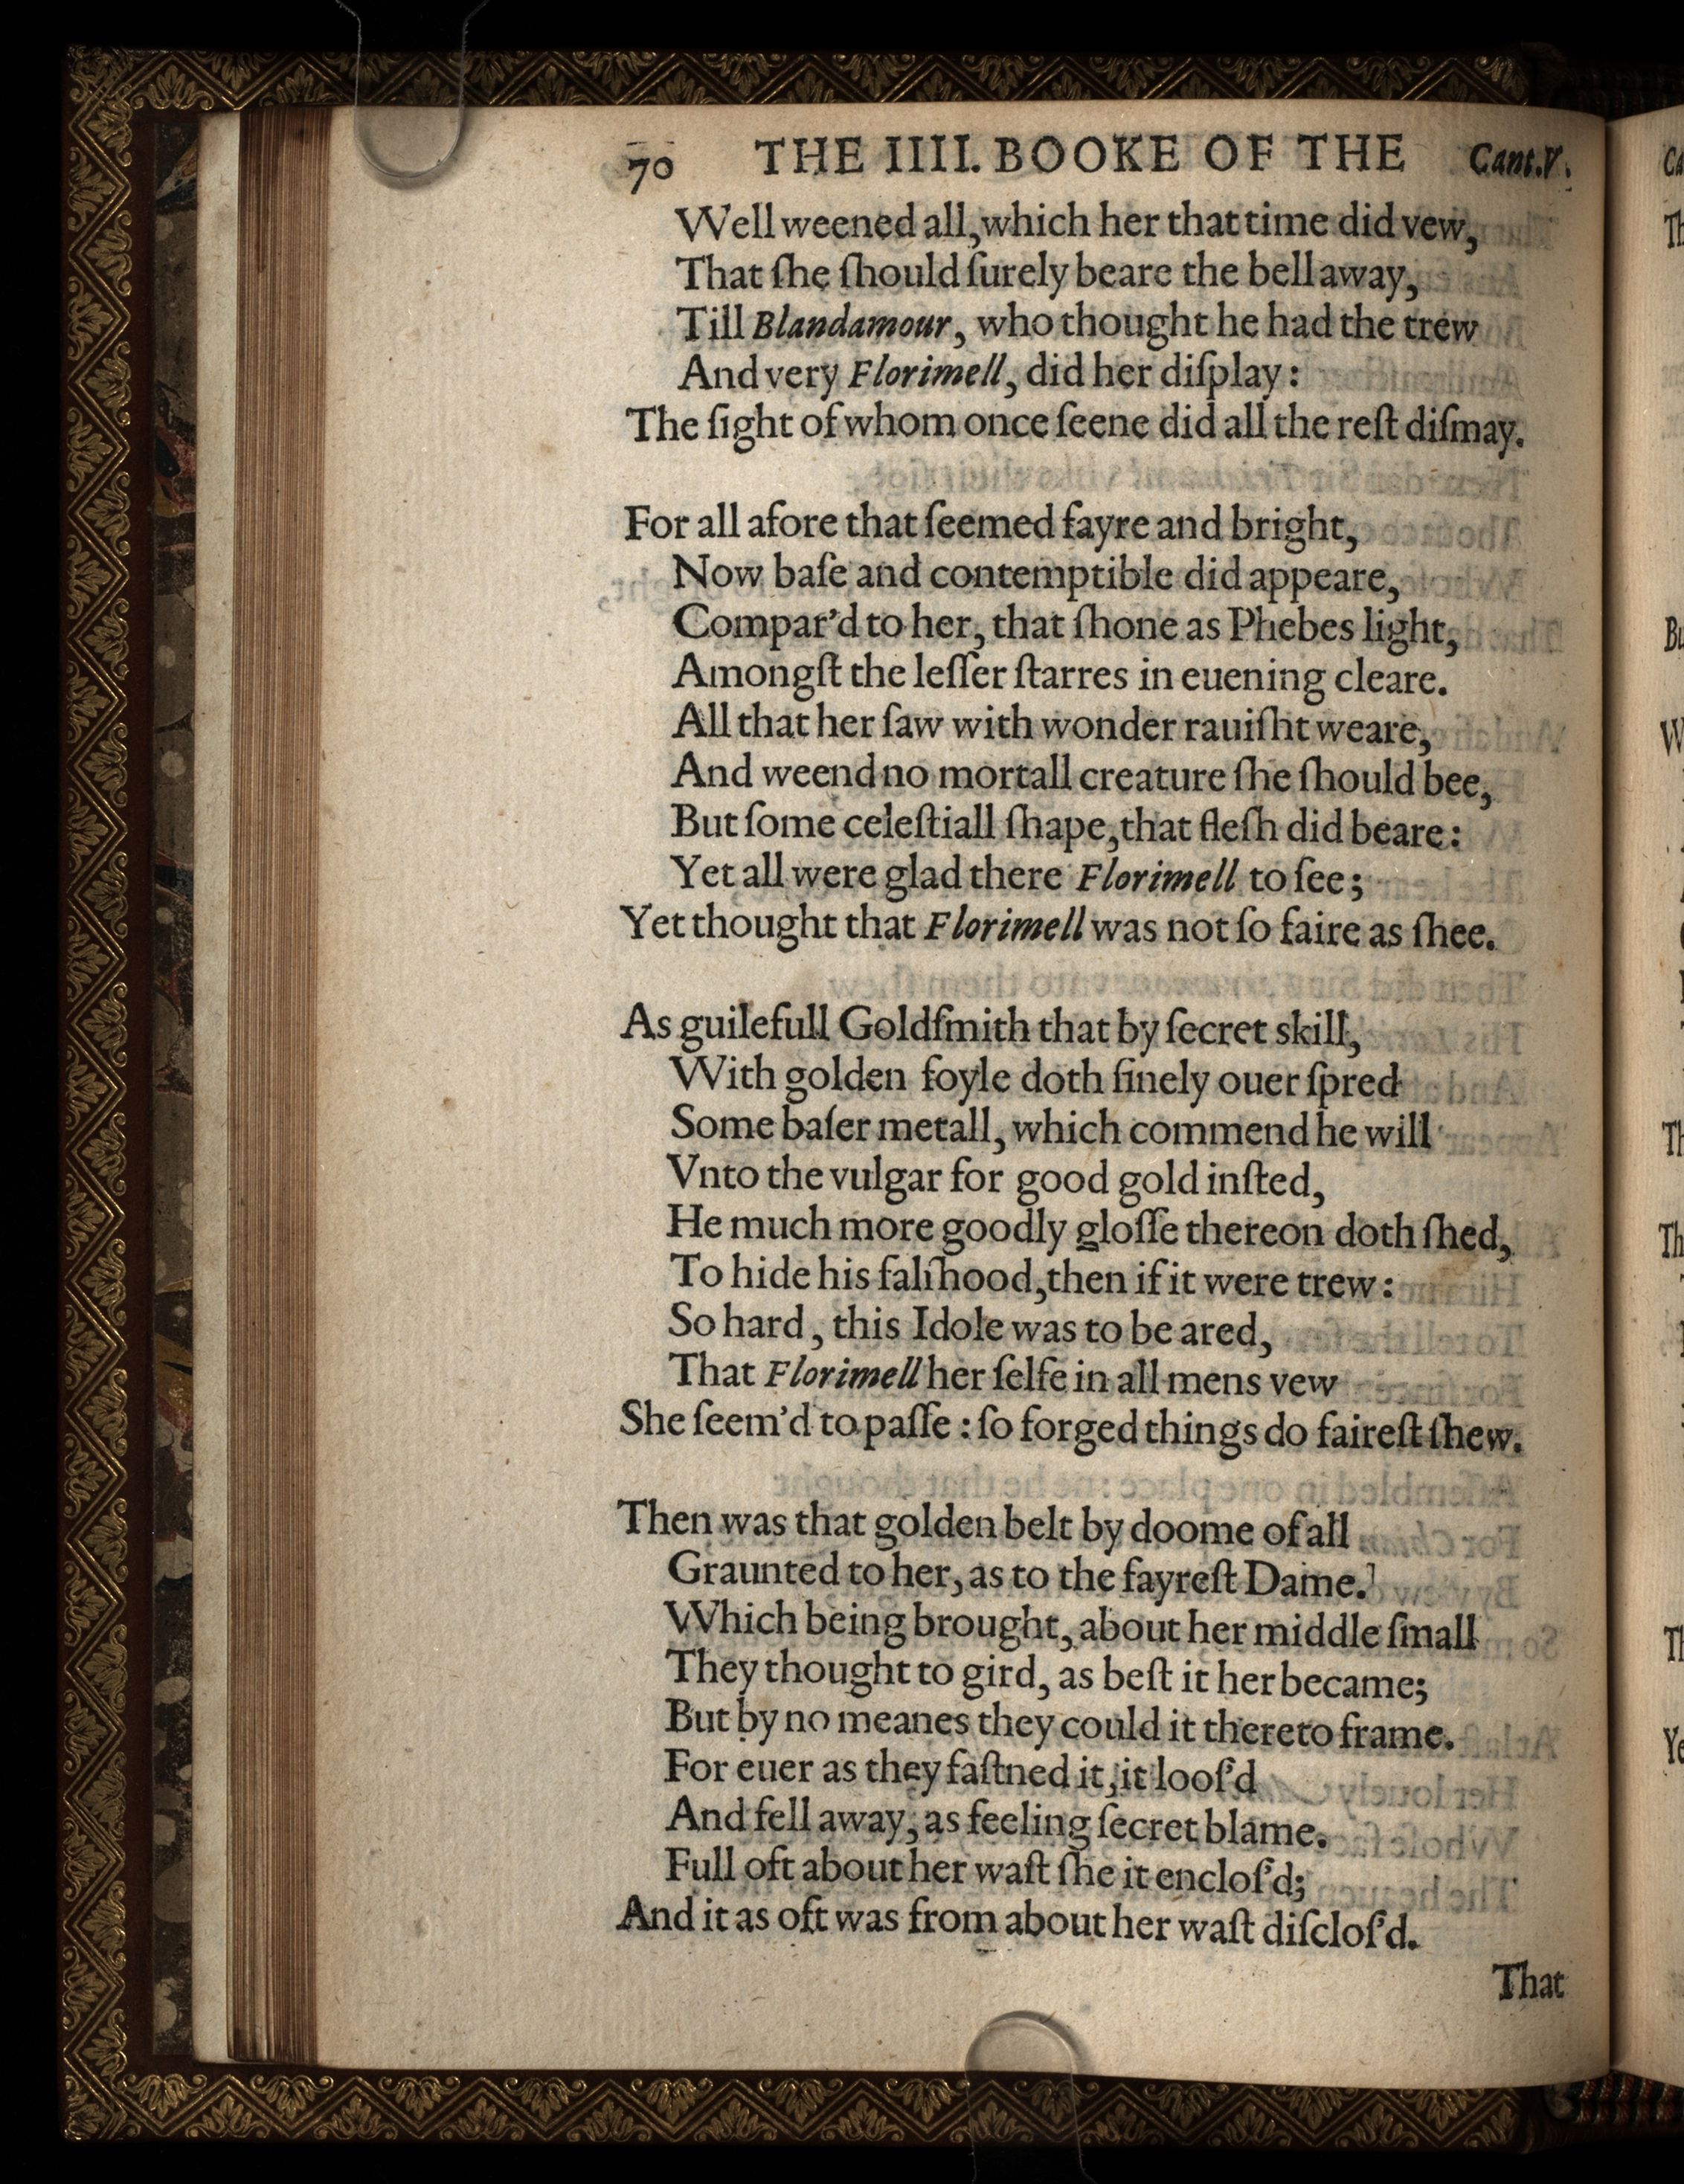 70 THE IIII. BOOKE OF THE Cant.V.
Well weened all, which her that time did vew,
That ſhe ſhould ſurely beare the bell away,
Till Blandamour, who thought he had the trew
And very Florimell, did her diſplay:
The ſight of whom once ſeene did all the reſt diſmay.
For all afore that ſeemed fayre and bright,
Now baſe and contemptible did appeare,
Compar'd to her, that ſhone as Phebes light,
Amongſt the leſſer ſtarres in euening cleare.
All that her ſaw with wonder rauiſht weare,
And weend no mortall creature ſhe ſhould bee,
But ſome celeſtiall ſhape, that fleſh did beare:
Yet all were glad there Florimell to ſee;
Yet thought that Florimell was not ſo faire as ſhee.
As guilefull Goldſmith that by ſecret skill,
With golden foyle doth finely ouer ſpred
Some baſer metall, which commend he will
Vnto the vulgar for good gold inſted,
He much more goodly gloſſe thereon doth ſhed,
To hide his falſhood, then if it were trew:
So hard, this Idole was to be ared,
That Florimell her ſelfe in all mens vew
She ſeem'd to paſſe: ſo forged things do faireſt ſhew.
Then was that golden belt by doome of all
Graunted to her, as to the fayreſt Dame.
Which being brought, about her middle ſmall
They thought to gird, as beſt it her became;
But by no meanes they could it thereto frame.
For euer as they faſtned it, it looſ'd
And fell away, as feeling ſecret blame.
Full oft about her waſt ſhe it encloſ'd;
And it as oft was from about her waſt diſcloſ'd.
That